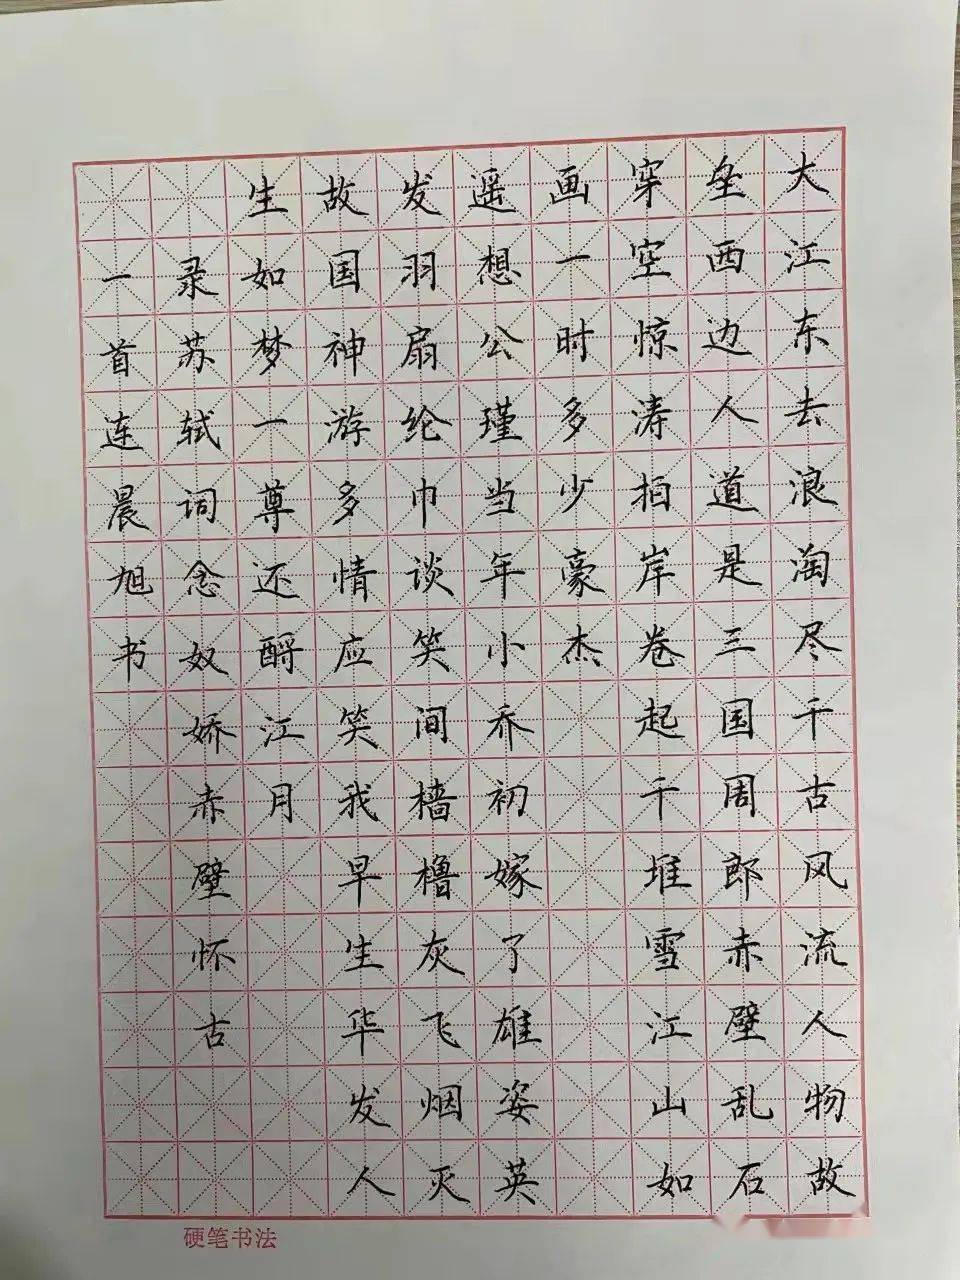 大江东去浪淘尽千古风流人物故
垒西边人道是三国周郎赤壁乱石
穿空惊涛拍岸卷起千堆雪江山如
画一时多少豪杰
遥想公瑾当年小乔初嫁了雄姿英
发羽扇纶巾谈笑间樯橹灰飞烟灭
故国神游多情应笑我早生华发人
生如梦一尊还酹江月
录苏轼词念奴娇赤壁怀古
一首连晨旭书
硬笔书法